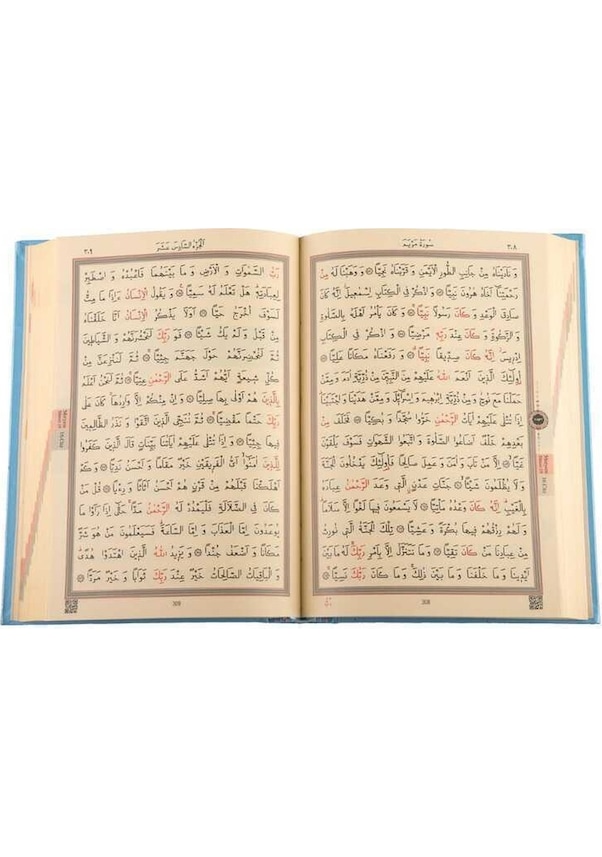 ٣٠٨ سورة مريم
وَنَادَيْنَاهُ مِنْ جَانِبِ الطُّورِ الْاَيْمَنِ وَقَرَّبْنَاهُ نَجِيًّا ﴿٥٢﴾ وَوَهَبْنَا لَهُ مِنْ
رَحْمَتِنَا اَخَاهُ هٰرُونَ نَبِيًّا ﴿٥٣﴾ وَاذْكُرْ فِي الْكِتَابِ اِسْمٰعِيلَ اِنَّهُ كَانَ
صَادِقَ الْوَعْدِ وَكَانَ رَسُولًا نَبِيًّا ﴿٥٤﴾ وَكَانَ يَأْمُرُ اَهْلَهُ بِالصَّلٰوةِ
وَالزَّكٰوةِ وَكَانَ عِنْدَ رَبِّهِ مَرْضِيًّا ﴿٥٥﴾ وَاذْكُرْ فِي الْكِتَابِ
اِدْرِيسَ اِنَّهُ كَانَ صِدِّيقًا نَبِيًّا ﴿٥٦﴾ وَرَفَعْنَاهُ مَكَانًا عَلِيًّا ﴿٥٧﴾
اُولٰئِكَ الَّذِينَ اَنْعَمَ اللّٰهُ عَلَيْهِمْ مِنَ النَّبِيّٖنَ مِنْ ذُرِّيَّةِ اٰدَمَ وَمِمَّنْ
حَمَلْنَا مَعَ نُوحٍ وَمِنْ ذُرِّيَّةِ اِبْرٰهِيمَ وَاِسْرَائِلَ وَمِمَّنْ هَدَيْنَا وَاجْتَبَيْنَا
اِذَا تُتْلٰى عَلَيْهِمْ اٰيَاتُ الرَّحْمٰنِ خَرُّوا سُجَّدًا وَبُكِيًّا ﴿٥٨﴾ فَخَلَفَ مِنْ
بَعْدِهِمْ خَلْفٌ اَضَاعُوا الصَّلٰوةَ وَاتَّبَعُوا الشَّهَوَاتِ فَسَوْفَ يَلْقَوْنَ
غَيًّا ﴿٥٩﴾ اِلَّا مَنْ تَابَ وَاٰمَنَ وَعَمِلَ صَالِحًا فَاُولٰئِكَ يَدْخُلُونَ الْجَنَّةَ
وَلَا يُظْلَمُونَ شَيْئًا ﴿٦٠﴾ جَنَّاتِ عَدْنٍ الَّتِي وَعَدَ الرَّحْمٰنُ عِبَادَهُ
بِالْغَيْبِ اِنَّهُ كَانَ وَعْدُهُ مَأْتِيًّا ﴿٦١﴾ لَا يَسْمَعُونَ فِيهَا لَغْوًا اِلَّا سَلَامًا
وَلَهُمْ رِزْقُهُمْ فِيهَا بُكْرَةً وَعَشِيًّا ﴿٦٢﴾ تِلْكَ الْجَنَّةُ الَّتِي نُورِثُ
مِنْ عِبَادِنَا مَنْ كَانَ تَقِيًّا ﴿٦٣﴾ وَمَا نَتَنَزَّلُ اِلَّا بِاَمْرِ رَبِّكَ لَهُ مَا بَيْنَ
اَيْدِينَا وَمَا خَلْفَنَا وَمَا بَيْنَ ذٰلِكَ وَمَا كَانَ رَبُّكَ نَسِيًّا ﴿٦٤﴾
308
٣٠٩ الجزء السادس عشر
رَبُّ السَّمٰوَاتِ وَالْاَرْضِ وَمَا بَيْنَهُمَا فَاعْبُدْهُ وَاصْطَبِرْ
لِعِبَادَتِهِ هَلْ تَعْلَمُ لَهُ سَمِيًّا ﴿٦٥﴾ وَيَقُولُ الْاِنْسَانُ ءَاِذَا مَا مِتُّ
لَسَوْفَ اُخْرَجُ حَيًّا ﴿٦٦﴾ اَوَلَا يَذْكُرُ الْاِنْسَانُ اَنَّا خَلَقْنَاهُ
مِنْ قَبْلُ وَلَمْ يَكُ شَيْئًا ﴿٦٧﴾ فَوَرَبِّكَ لَنَحْشُرَنَّهُمْ وَالشَّيَاطِينَ
ثُمَّ لَنُحْضِرَنَّهُمْ حَوْلَ جَهَنَّمَ جِثِيًّا ﴿٦٨﴾ ثُمَّ لَنَنْزِعَنَّ مِنْ
كُلِّ شِيعَةٍ اَيُّهُمْ اَشَدُّ عَلَى الرَّحْمٰنِ عِتِيًّا ﴿٦٩﴾ ثُمَّ لَنَحْنُ اَعْلَمُ
بِالَّذِينَ هُمْ اَوْلٰى بِهَا صِلِيًّا ﴿٧٠﴾ وَاِنْ مِنْكُمْ اِلَّا وَارِدُهَا كَانَ عَلٰى
رَبِّكَ حَتْمًا مَقْضِيًّا ﴿٧١﴾ ثُمَّ نُنَجِّي الَّذِينَ اتَّقَوْا وَنَذَرُ الظَّالِمِينَ
فِيهَا جِثِيًّا ﴿٧٢﴾ وَاِذَا تُتْلٰى عَلَيْهِمْ اٰيَاتُنَا بَيِّنَاتٍ قَالَ الَّذِينَ كَفَرُوا
لِلَّذِينَ اٰمَنُوا اَيُّ الْفَرِيقَيْنِ خَيْرٌ مَقَامًا وَاَحْسَنُ نَدِيًّا ﴿٧٣﴾ وَكَمْ
اَهْلَكْنَا قَبْلَهُمْ مِنْ قَرْنٍ هُمْ اَحْسَنُ اَثَاثًا وَرِءْيًا ﴿٧٤﴾ قُلْ مَنْ
كَانَ فِي الضَّلَالَةِ فَلْيَمْدُدْ لَهُ الرَّحْمٰنُ مَدًّا حَتّٰى اِذَا رَاَوْا مَا
يُوعَدُونَ اِمَّا الْعَذَابَ وَاِمَّا السَّاعَةَ فَسَيَعْلَمُونَ مَنْ هُوَ شَرٌّ
مَكَانًا وَاَضْعَفُ جُنْدًا ﴿٧٥﴾ وَيَزِيدُ اللّٰهُ الَّذِينَ اهْتَدَوْا هُدًى
وَالْبَاقِيَاتُ الصَّالِحَاتُ خَيْرٌ عِنْدَ رَبِّكَ ثَوَابًا وَخَيْرٌ مَرَدًّا ﴿٧٦﴾
309